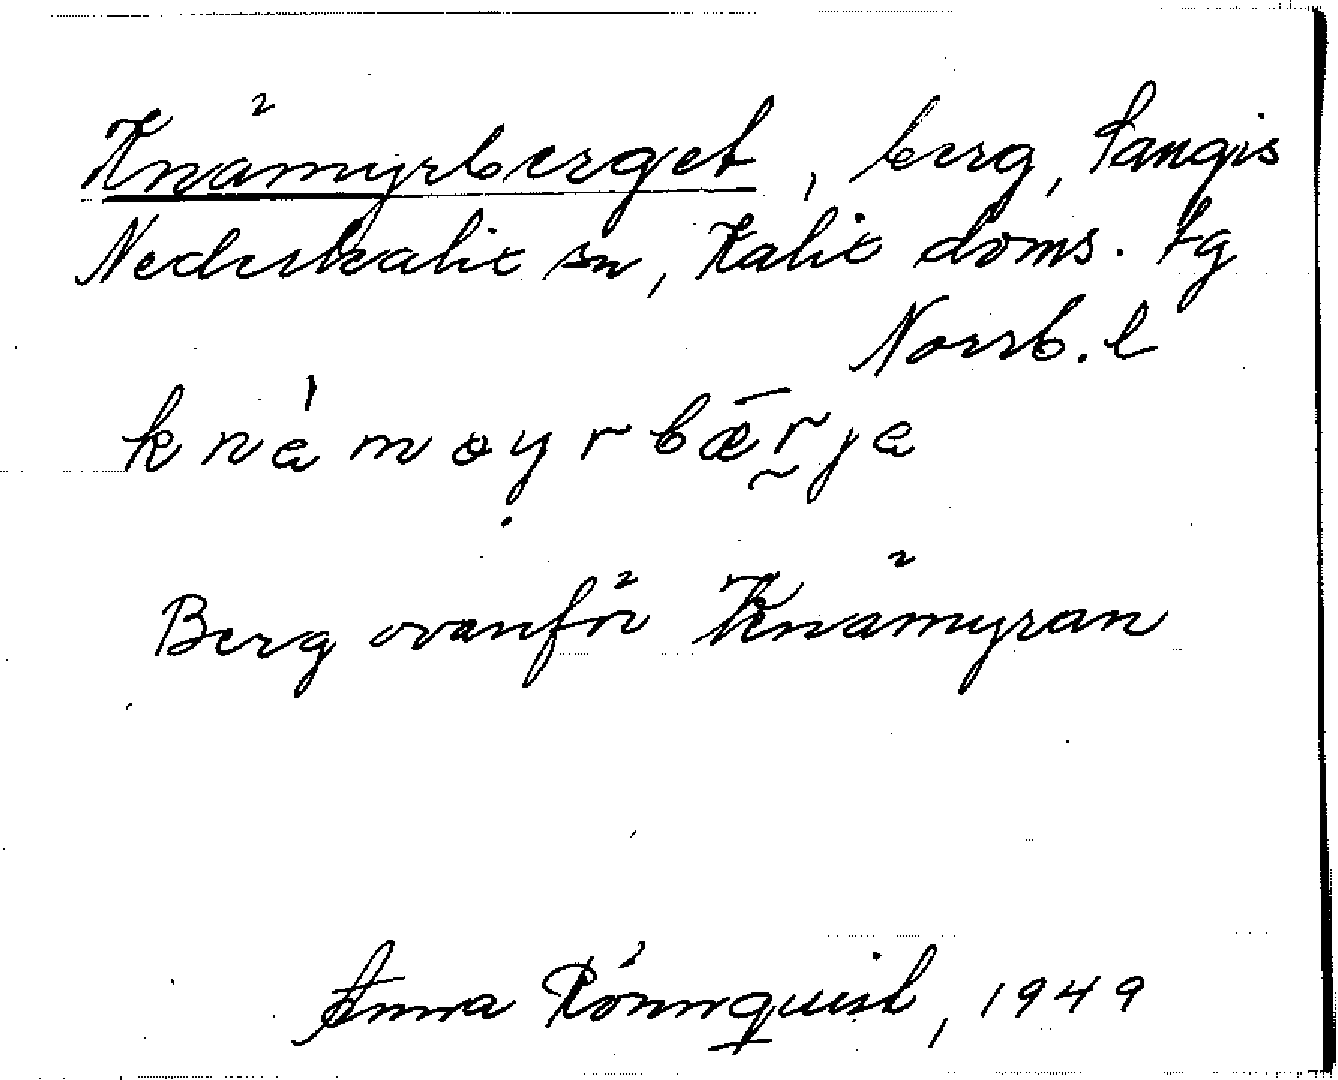 Knämyrberget, berg, Sangis
Nederkalix sn, Kalix doms. lg
Norrb. l
Berg ovanför Knämyran
Anna Rönnquist, 1949